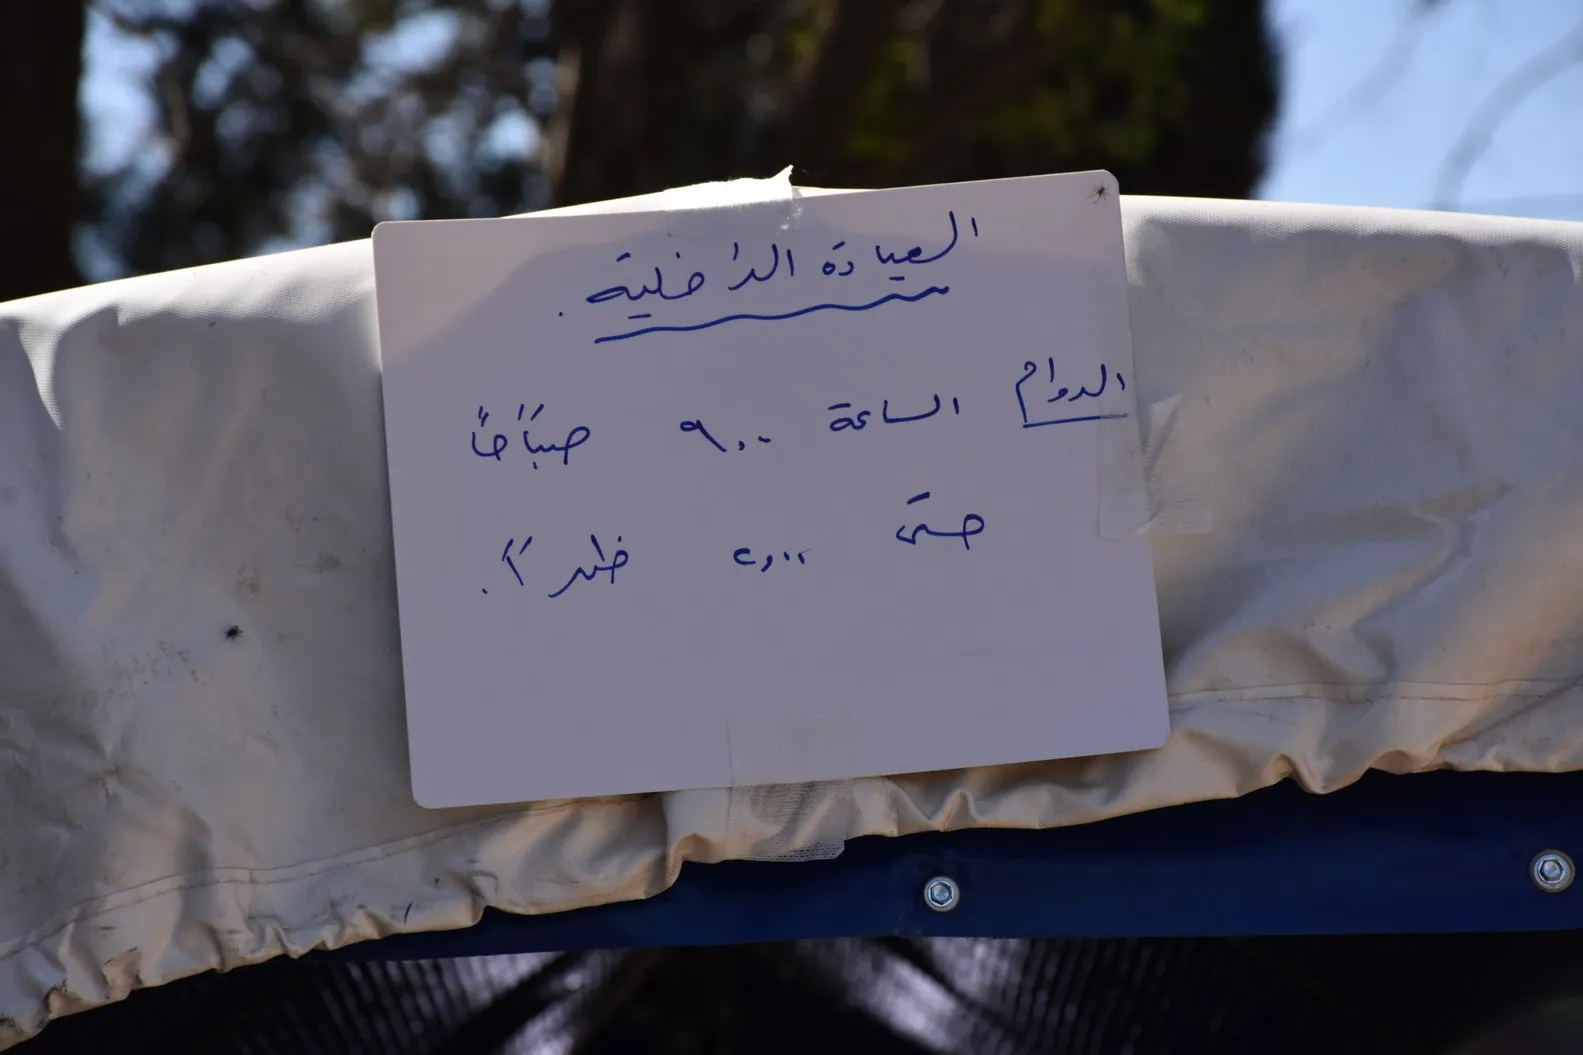 العيادة الداخلية.
الدوام الساعة ٩,٠٠ صباحاً
حتى ٢,٠٠ ظهراً.